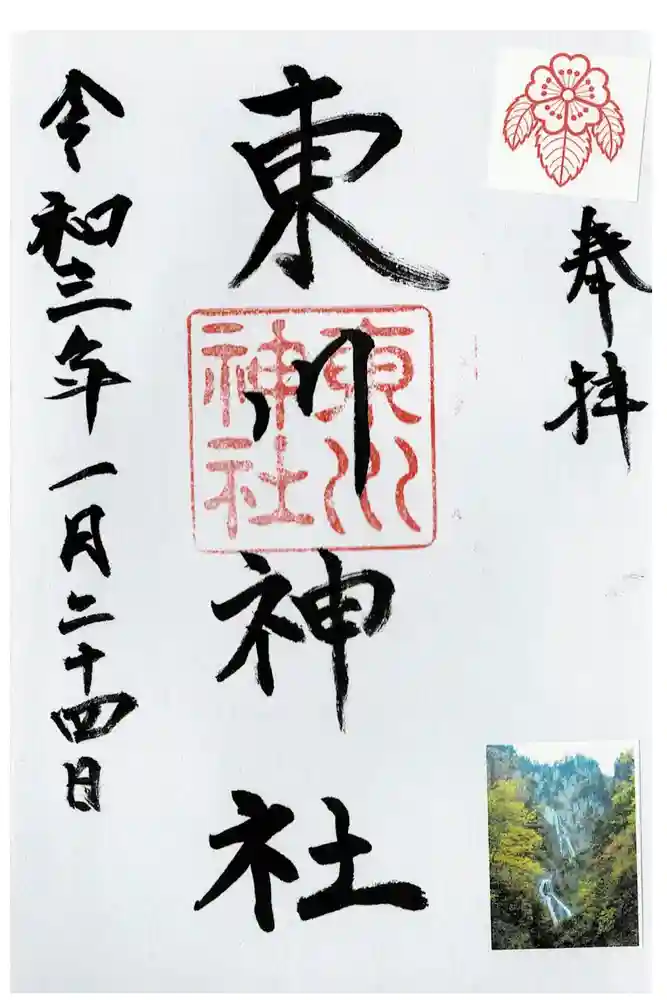 奉拝
東川神社
東川
神社
令和三年一月二十四日